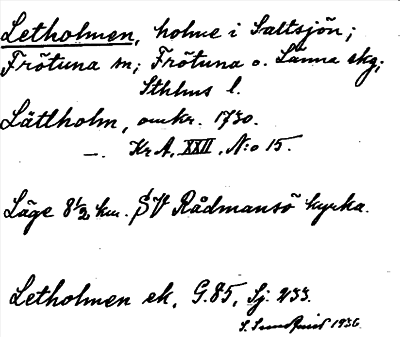 Letholmen, holme i Saltsjön;
Frötuna sn; Frötuna o. Länna skg;
Sthlms l.
Lättholm, omkr. 1730.
—. Kr A, XXII, N:o 15.
Läge 8 1/2 km. SV Rådmansö kyrka.
Letholmen ek. G. 85, Sj. 233.
1936.